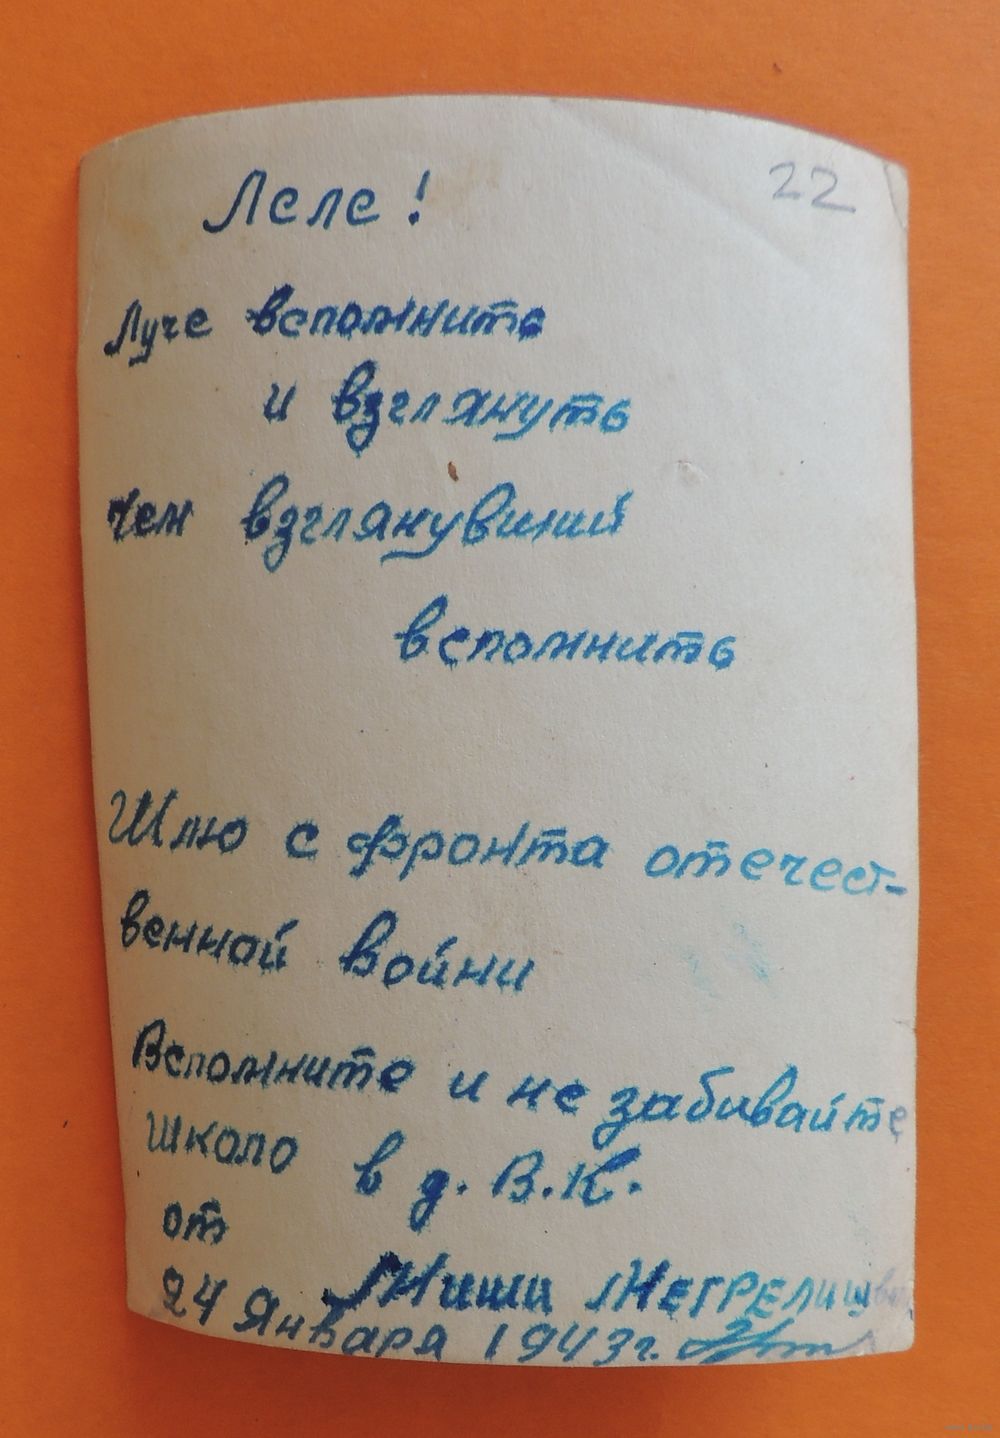 22
Леле!
Луче вспомнить
и взглянуть
Чем взглянувший
вспомнить
Шлю с фронта отечест-
венной войни
Вспомните и не забивайте
школо в д. В.К.
от
Миши Мегрелишвили
24 Января 1943г.